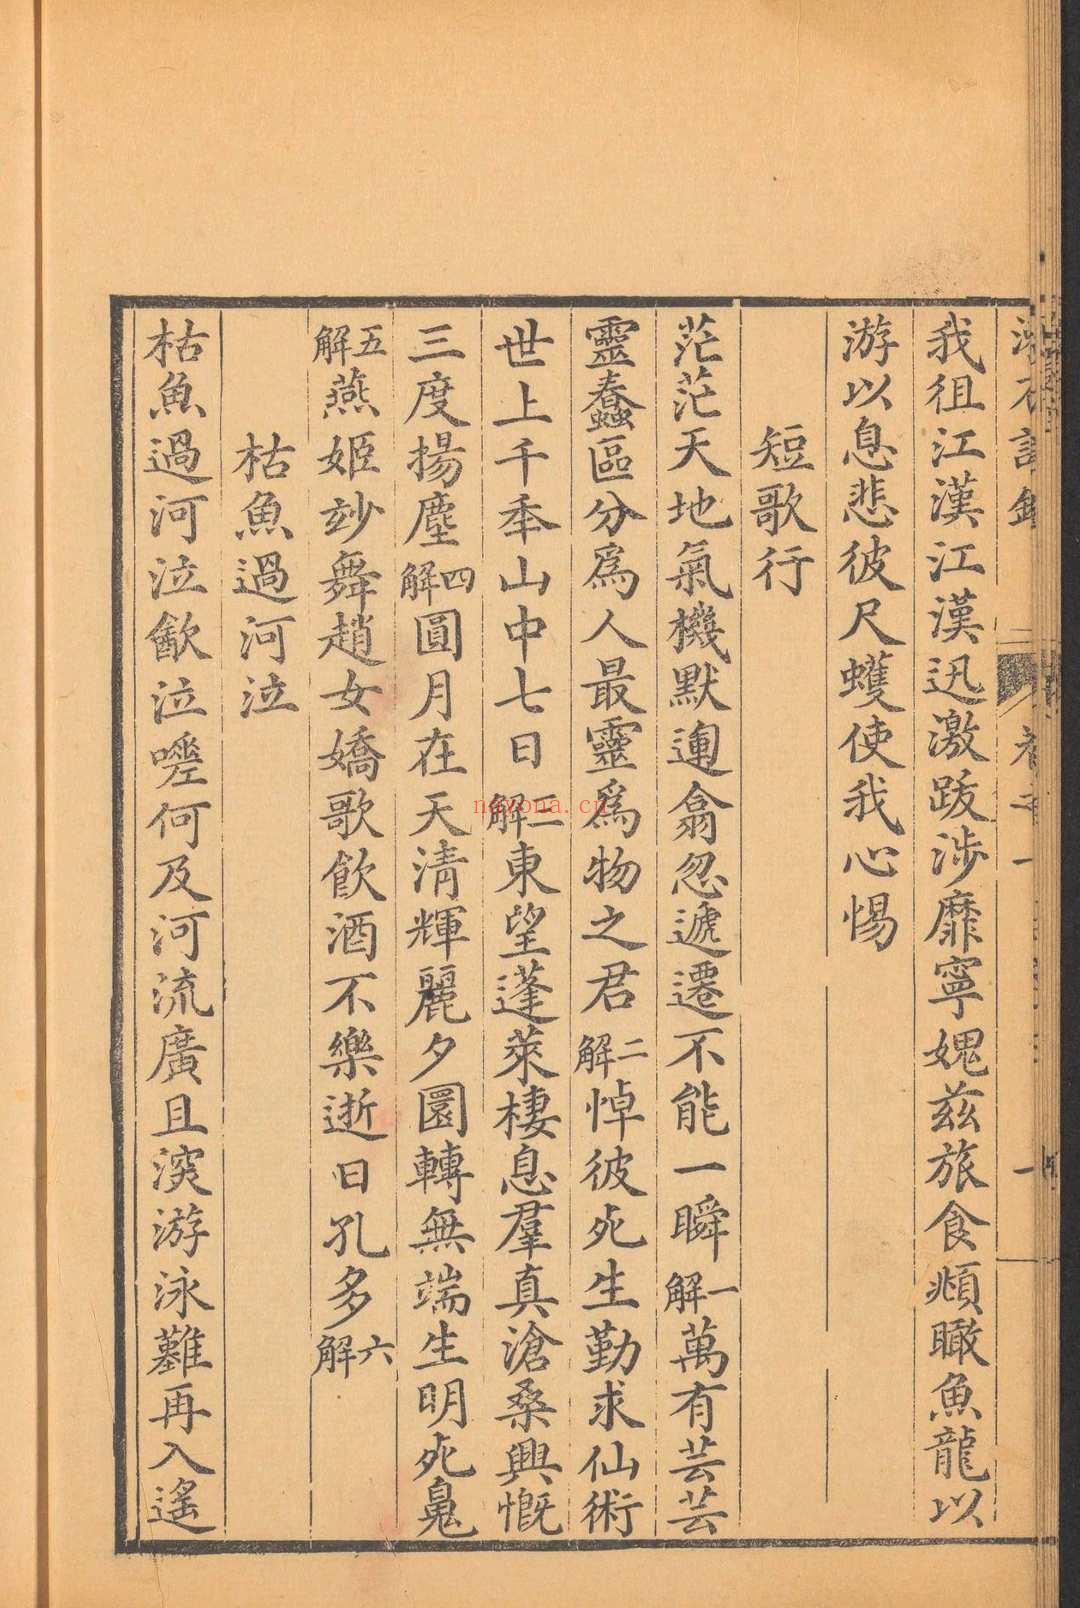 我徂江漢江漢迅激跋涉靡寧媿茲旅食頫瞰魚龍以
游以息悲彼尺蠖使我心惕
短歌行
茫茫天地氣機默運翕忽遞遷不能一瞬一解萬有芸芸
靈蠢區分爲人最靈爲物之君二解悼彼死生勤求仙術
世上千秊山中七日三解東望蓬萊棲息羣真滄桑興慨
三度揚塵四解圓月在天清輝麗夕圜轉無端生明死魄
五解燕姬玅舞趙女嬌歌飲酒不樂逝日孔多六解
枯魚過河泣
枯魚過河泣歔泣嗟何及河流廣且深游泳難再入遙
nayona.cn